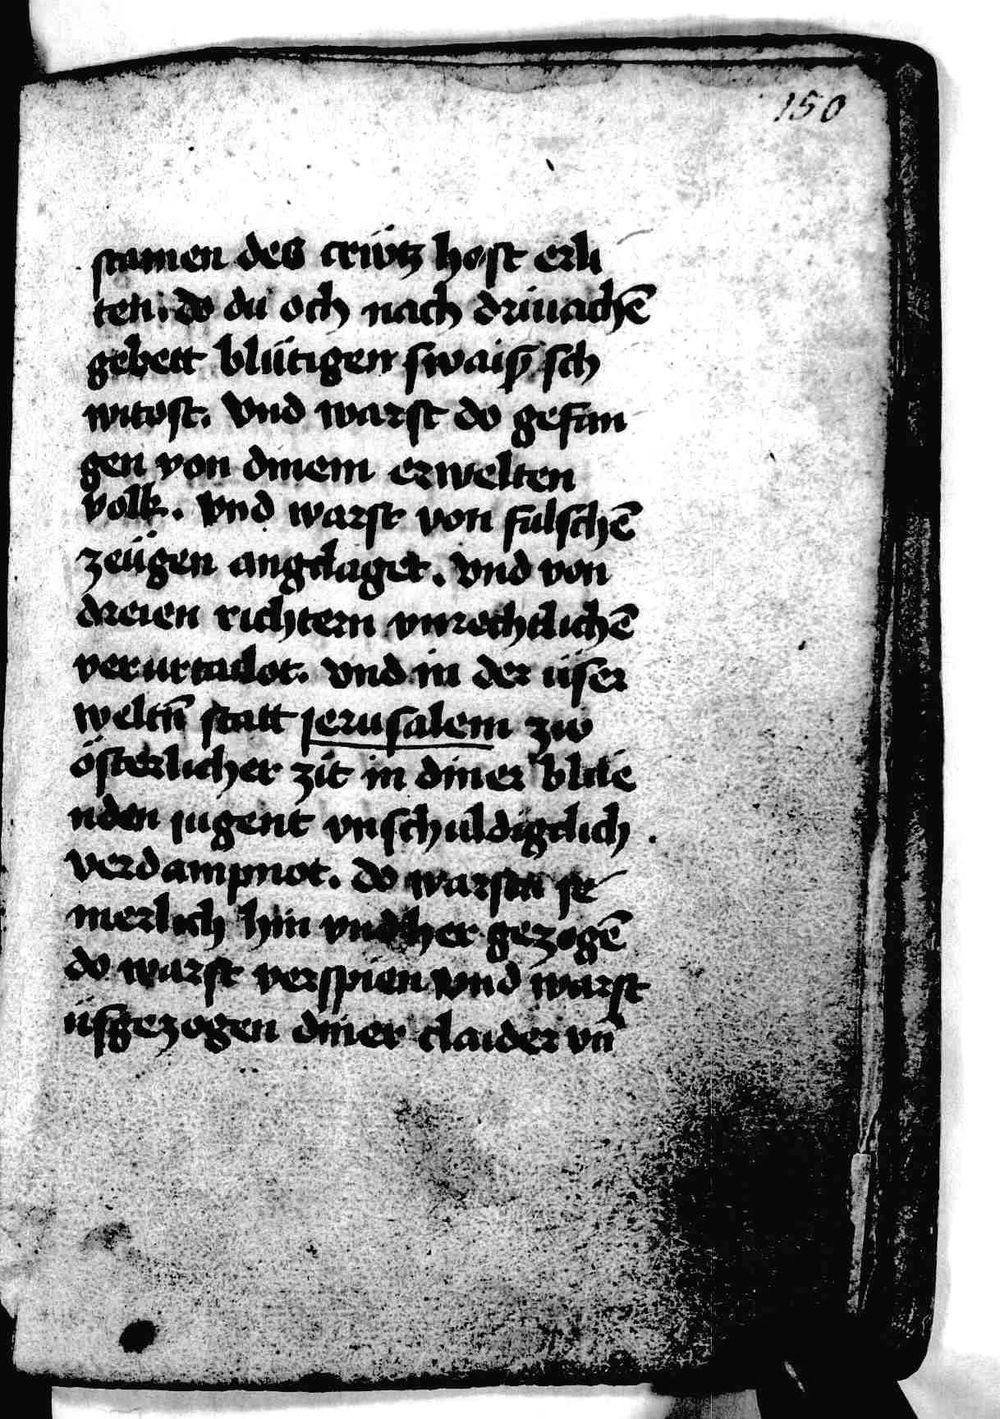 150
stamen des criütz hast erli
ten. do du och nach driuachē
gebett blütigen swaiß sch
witost. Vnd warst do gefan
gen von dinem erwelten
volk. vnd warst von falschē
zeügen angclaget. vnd von
dreien richtern vnrechtlichē
verurtailot. vnd in der üser
weltn̄ statt jerusalem zuo
österlicher zit in diner blüe
nden jugent vnschuldigclich
verdampnot. do warstu je
merlich hin vnd her gezogē
do warst verspien vnd warst
üsgezogen diner claider vn̄